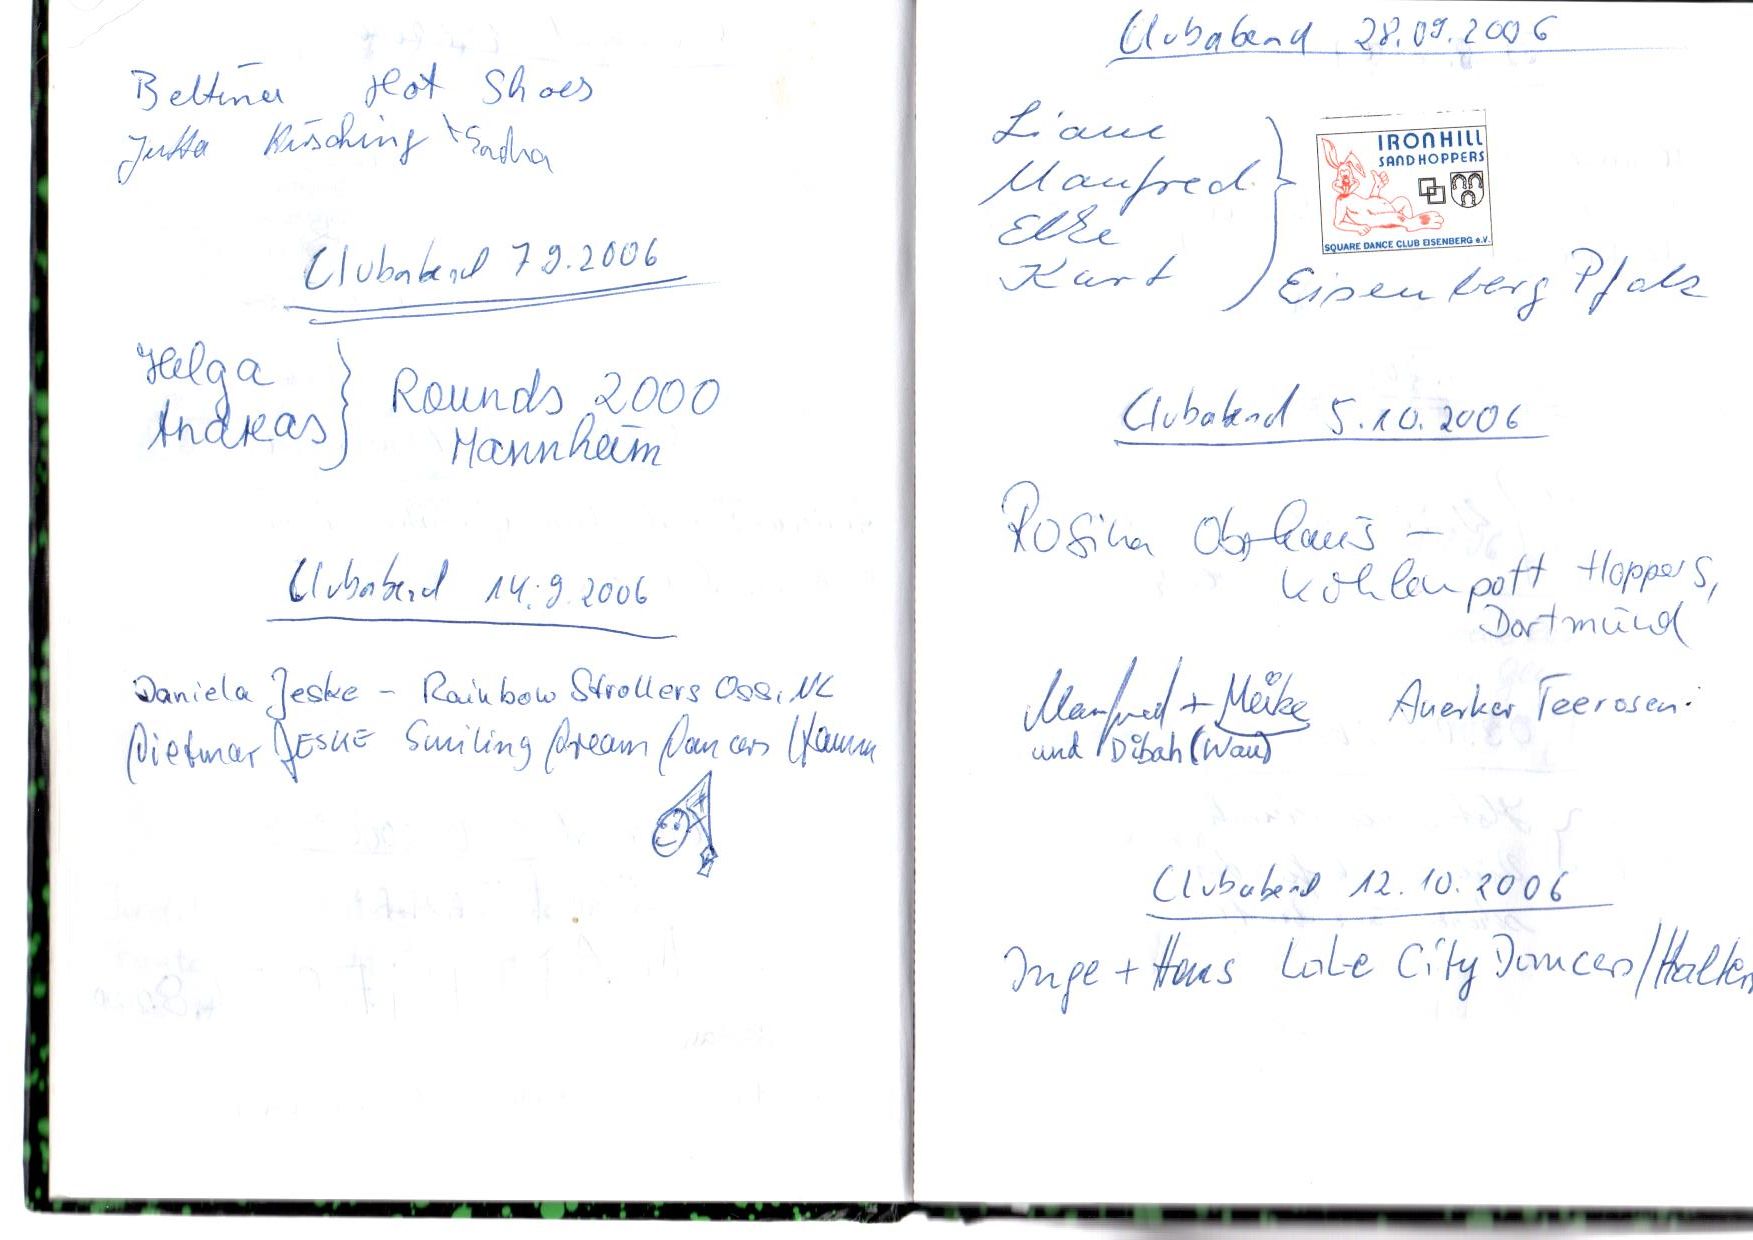 Bettina Hot Shoes
Jutta Rüsching + Sascha
Clubabend 7 9.2006
Helga
Andreas
Rounds 2000
Mannheim
Clubabend 14.9.2006
Daniela Jeske - Rainbow Strollers Oss, NL
Dietmar JESKE Smiling Dream Dancers / Hamm
Clubabend 28.09.2006
Liane
Manfred
Elke
Kurt
IRONHILL
SANDHOPPERS
SQUARE DANCE CLUB EISENBERG e.V.
Eisenberg Pfalz
Clubabend 5.10.2006
Rosina -
Kohlenpott Hoppers,
Dortmund
Manfred + Meike Auerker Teerosen.
und Dibah (Wau)
Clubabend 12.10.2006
Inge + Hans Lake City Dancers/Haltern